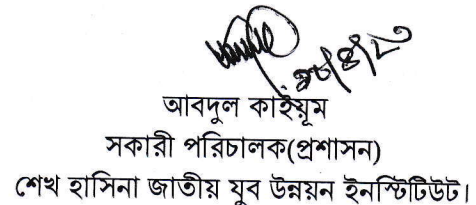 আবদুল কাইয়ূম
সকারী পরিচালক(প্রশাসন)
শেখ হাসিনা জাতীয় যুব উন্নয়ন ইনস্টিটিউট।